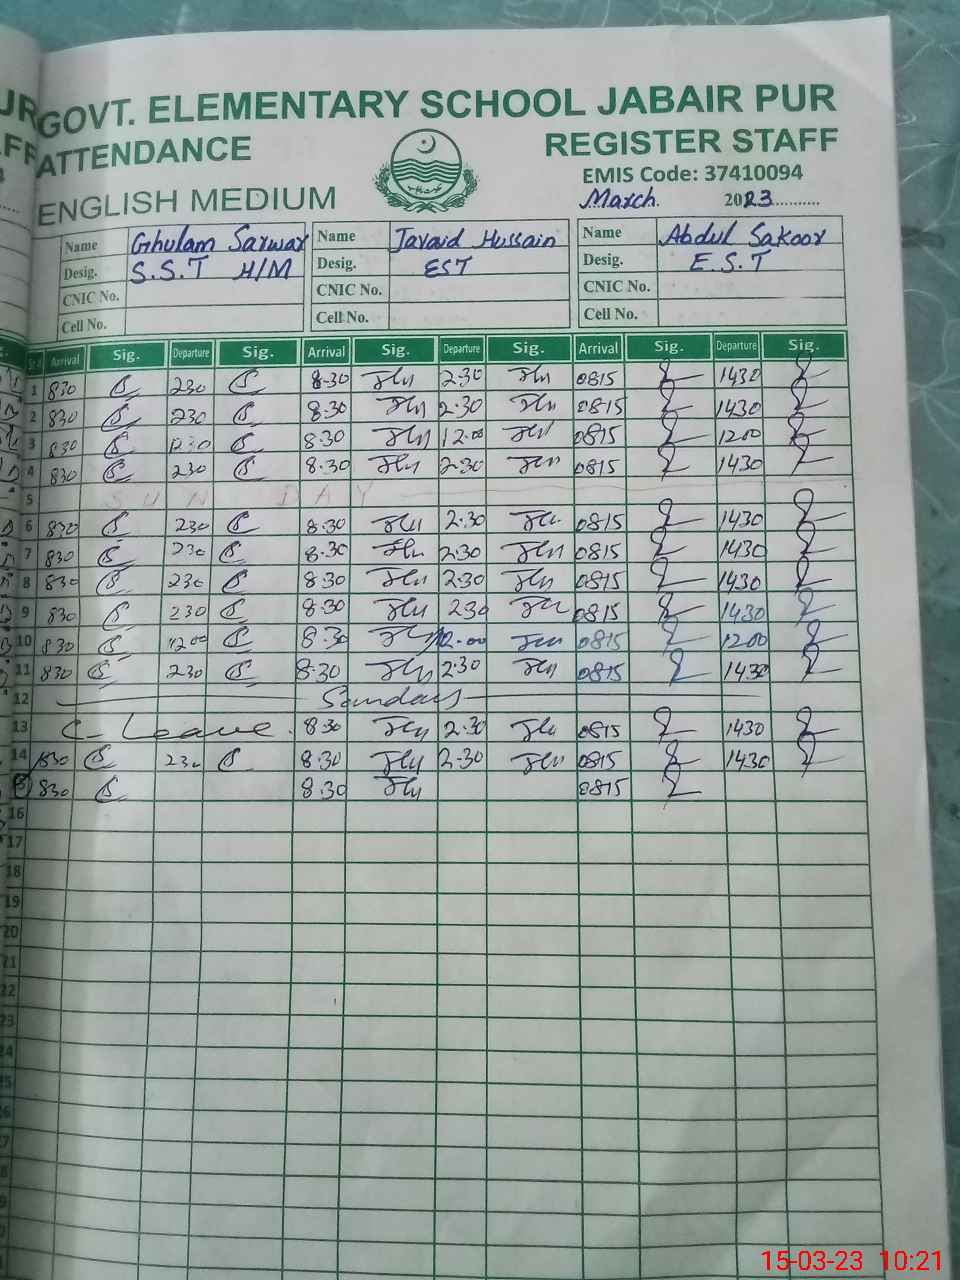 GOVT. ELEMENTARY SCHOOL JABAIR PUR
ATTENDANCE REGISTER STAFF
EMIS Code: 37410094
ENGLISH MEDIUM March. 2023...........
Name Ghulam Sarwar Name Javaid Hussain Name Abdul Sakoor
Desig. S.S.T H/M Desig. EST Desig. E.S.T
CNIC No. CNIC No. CNIC No.
Cell No. Cell No. Cell No.
Arrival Sig. Departure Sig. Arrival Sig. Departure Sig. Arrival Sig. Departure Sig.
1 830 230 8.30 2.30 0815 1430
2 830 230 8.30 2.30 0815 1430
3 830 1230 8.30 12.00 0815 1200
4 830 230 8.30 2.30 0815 1430
5 SUNDAY
6 830 230 8.30 2.30 0815 1430
7 830 230 8.30 2.30 0815 1430
8 830 230 8.30 2.30 0815 1430
9 830 230 8.30 230 0815 1430
10 830 1200 8.30 12.00 0815 1200
11 830 230 8.30 2.30 0815 1430
12 Sunday
13 C-Leave. 8.30 2.30 0815 1430
14 830 230 8.30 2.30 0815 1430
830 8.30 0815
16
17
18
19
20
21
22
23
24
15-03-23 10:21